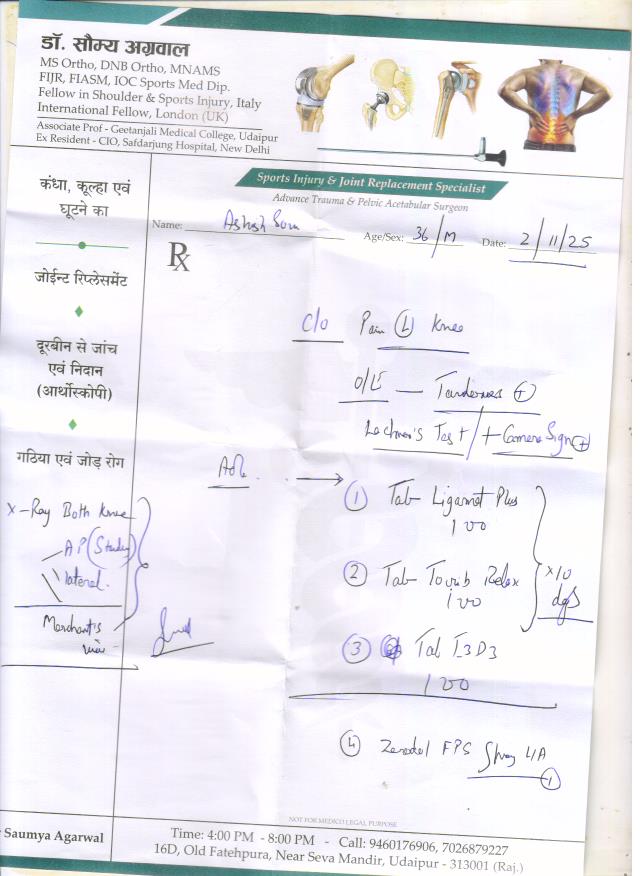 डॉ. सौम्य अग्रवाल
MS Ortho, DNB Ortho, MNAMS
FIJR, FIASM, IOC Sports Med Dip.
Fellow in Shoulder & Sports Injury, Italy
International Fellow, London (UK)
Associate Prof - Geetanjali Medical College, Udaipur
Ex Resident - CIO, Safdarjung Hospital, New Delhi
Sports Injury & Joint Replacement Specialist
Advance Trauma & Pelvic Acetabular Surgeon
Name: Ashish
Age/Sex: 36/M
Date: 2/11/25
Rx
कंधा, कूल्हा एवं
घूटने का
जोईन्ट रिप्लेसमेंट
दूरबीन से जांच
एवं निदान
(आर्थोस्कोपी)
गठिया एवं जोड़ रोग
C/o Pain (L) Knee
O/E — Tenderness (+)
Test / + Camera Sign (+)
X-Ray Both Knee
AP
lateral
Merchant's
view
① Tab Plus
100
② Tab Relax
100
x 10
dys
③ Tab
100
④ FPS Spray LA
①
NOT FOR MEDICO LEGAL PURPOSE
Saumya Agarwal
Time: 4:00 PM - 8:00 PM - Call: 9460176906, 7026879227
16D, Old Fatehpura, Near Seva Mandir, Udaipur - 313001 (Raj.)